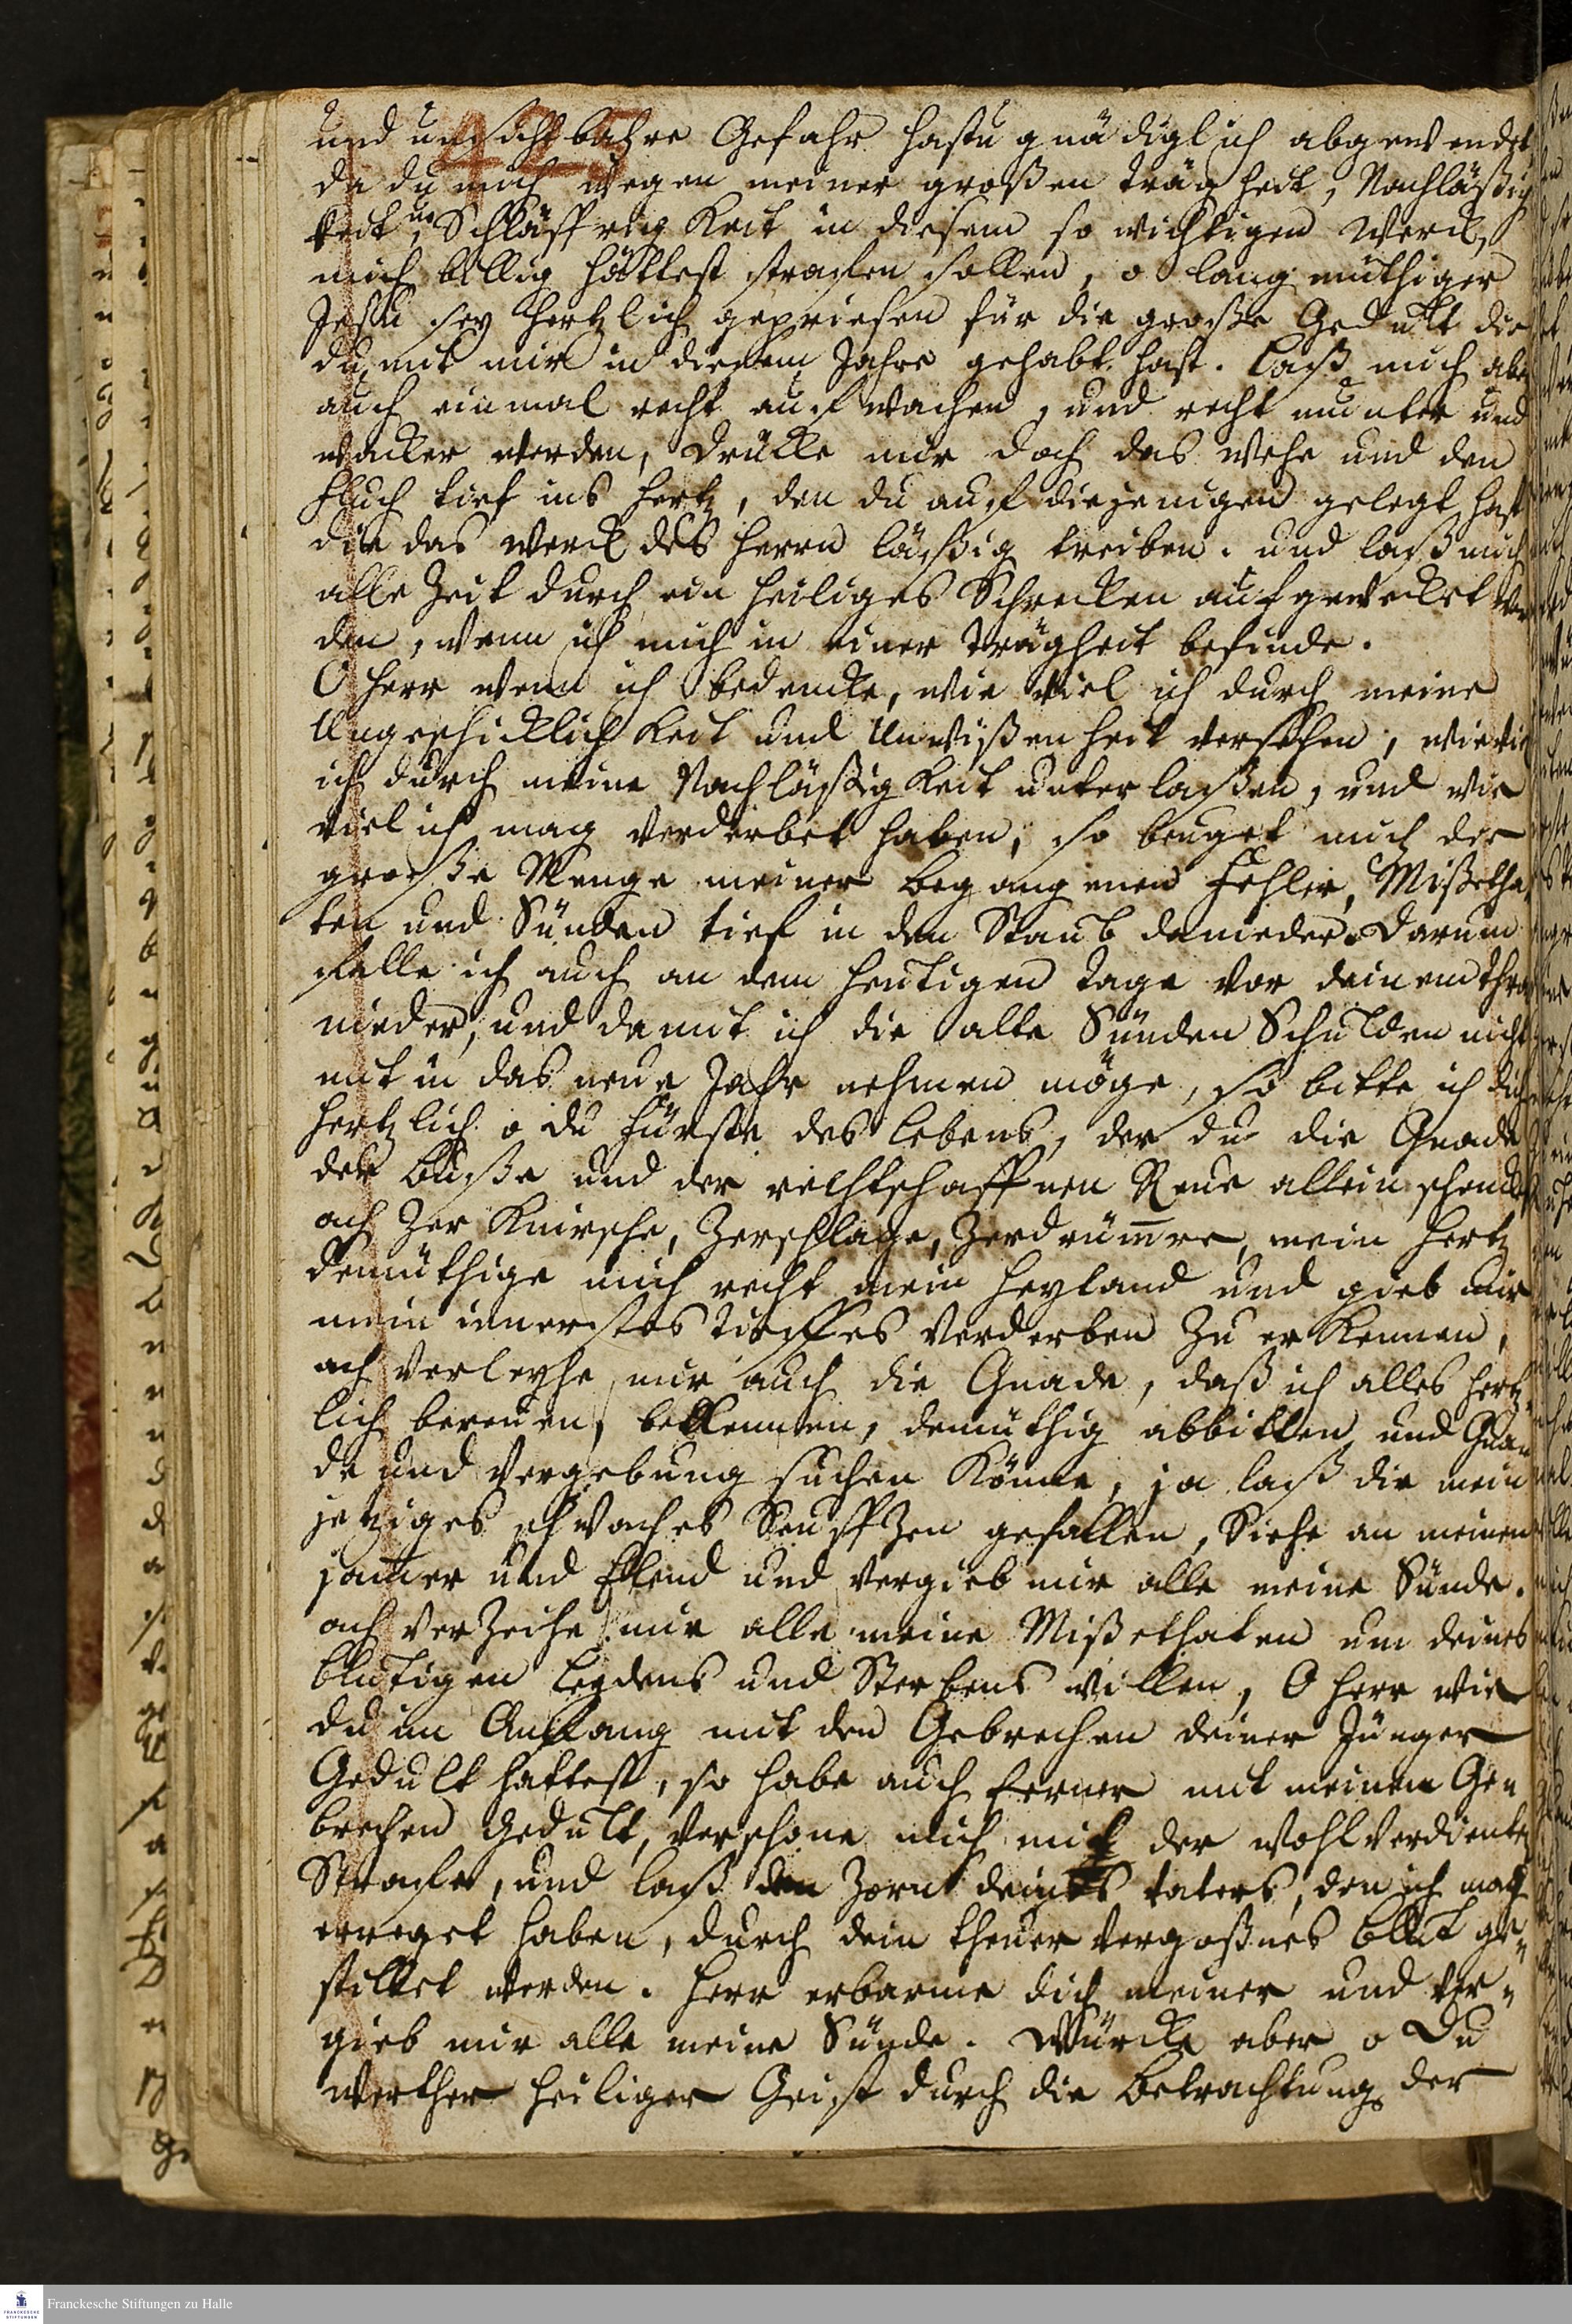 425
und unsichtbahre Gefahr hastu gnädiglich abgewendet,
da du mich wegen meiner großen trägheit, Nachläßig
keit, u. Schläffrigkeit in diesem so wichtigen Werck,
mich billig hättest straffen sollen, o langmüthiger
Jesu sey hertzlich gepriesen für die große Gedult die
du mit mir in diesem Jahre gehabt hast. Laß mich aber
auch einmal recht auffwachen, und recht munter und
wacker werden, drücke mir doch das Wehe und den
Fluch tief ins Hertz, den du auff diejenigen gelegt hast
die das Werck des Herrn läßig treiben. und laß mich
alle Zeit durch ein heiliges Schrecken aufgewecket wer
den, wenn ich mich in einer Trägheit befinde.
O Herr wenn ich bedencke, wie viel ich durch meine
Ungeschicklichkeit und Unwißenheit versehen, wie viel
ich durch meine Nachläßigkeit unterlaßen, und wie
viel ich mag verderbet haben, so beuget mich die
große Menge meiner begangenen Fehler, Mißetha
ten und Sünden tief in den Staub darnieder. Darum
falle ich auch an dem heutigen tage vor deinem thron
nieder, und damit ich die alte Sünden Schulden nicht
mit in das neue Jahr nehmen möge, so bitte ich dich
hertzlich o du Fürste des Lebens, der du die Gnade
der Buße und der rechtschaffnen Reue allein schenckest
ach Zerknirsche, Zerschlage, Zerdrüm̄re, mein Hertz
demüthige mich recht mein Heyland und gieb mir
mein innerstes tieffes Verderben zu erkennen,
ach verleyhe mir auch die Gnade, daß ich alles hertz-
lich bereuen, bekennen, demüthig abbitten und Gna
de und Vergebung suchen könne, ja laß dir mein
jetziges schwaches Seuffzen gefallen, Siehe an meinen
jam̄er und Elend und vergieb mir alle meine Sünde.
ach verzeihe mir alle meine Mißethaten um deines
blutigen Leydens und Sterbens willen, O Herr wie
du im Anfang mit den Gebrechen deiner Jünger
Gedult hattest, so habe auch ferner mit meinen Ge-
brechen Gedult, verschone mich mit der wohlverdienten
Straffe, und laß den Zorn deines Vaters, den ich mag
erreget haben, durch dein theuer vergoßnes Blut ge-
stillet werden. Herr erbarme dich meiner und ver-
gieb mir alle meine Sünde. Würcke aber o Du
werther heiliger Geist durch die Betrachtung der
Franckesche Stiftungen zu Halle